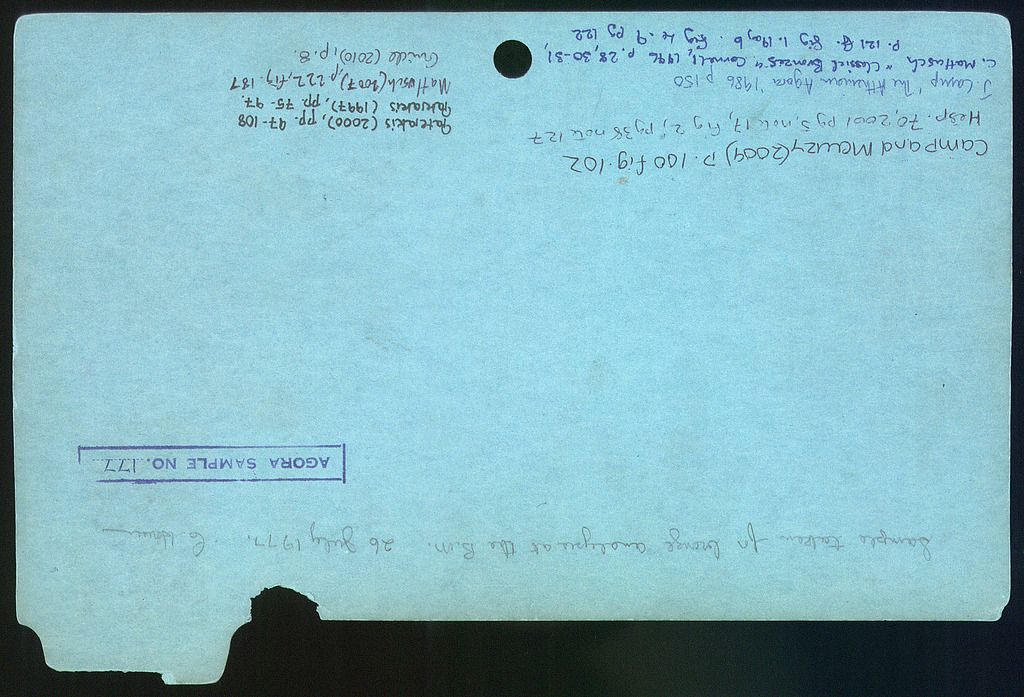 Sample taken for bronze analysis at the B.M. 26 July 1977. C.
AGORA SAMPLE NO. 177
Camp and Mauzy (2009) p. 100 fig. 102
Hesp. 70, 2001 pg 5, note 17, fig 2, pg 38 note 127
J. Camp "The Athenian Agora" 1986 p 150
C. Mattusch "Classical Bronzes", Cornell, 1996 p. 28, 30-31,
p. 121 ff. fig 1. 19a,b. fig 4.9 pg 122
Paterakis (2000), pp. 97-108
Paterakis (1997), pp. 75-97.
Mattusch (2007) p. 222, fig. 187
Guide (2010), p. 8.